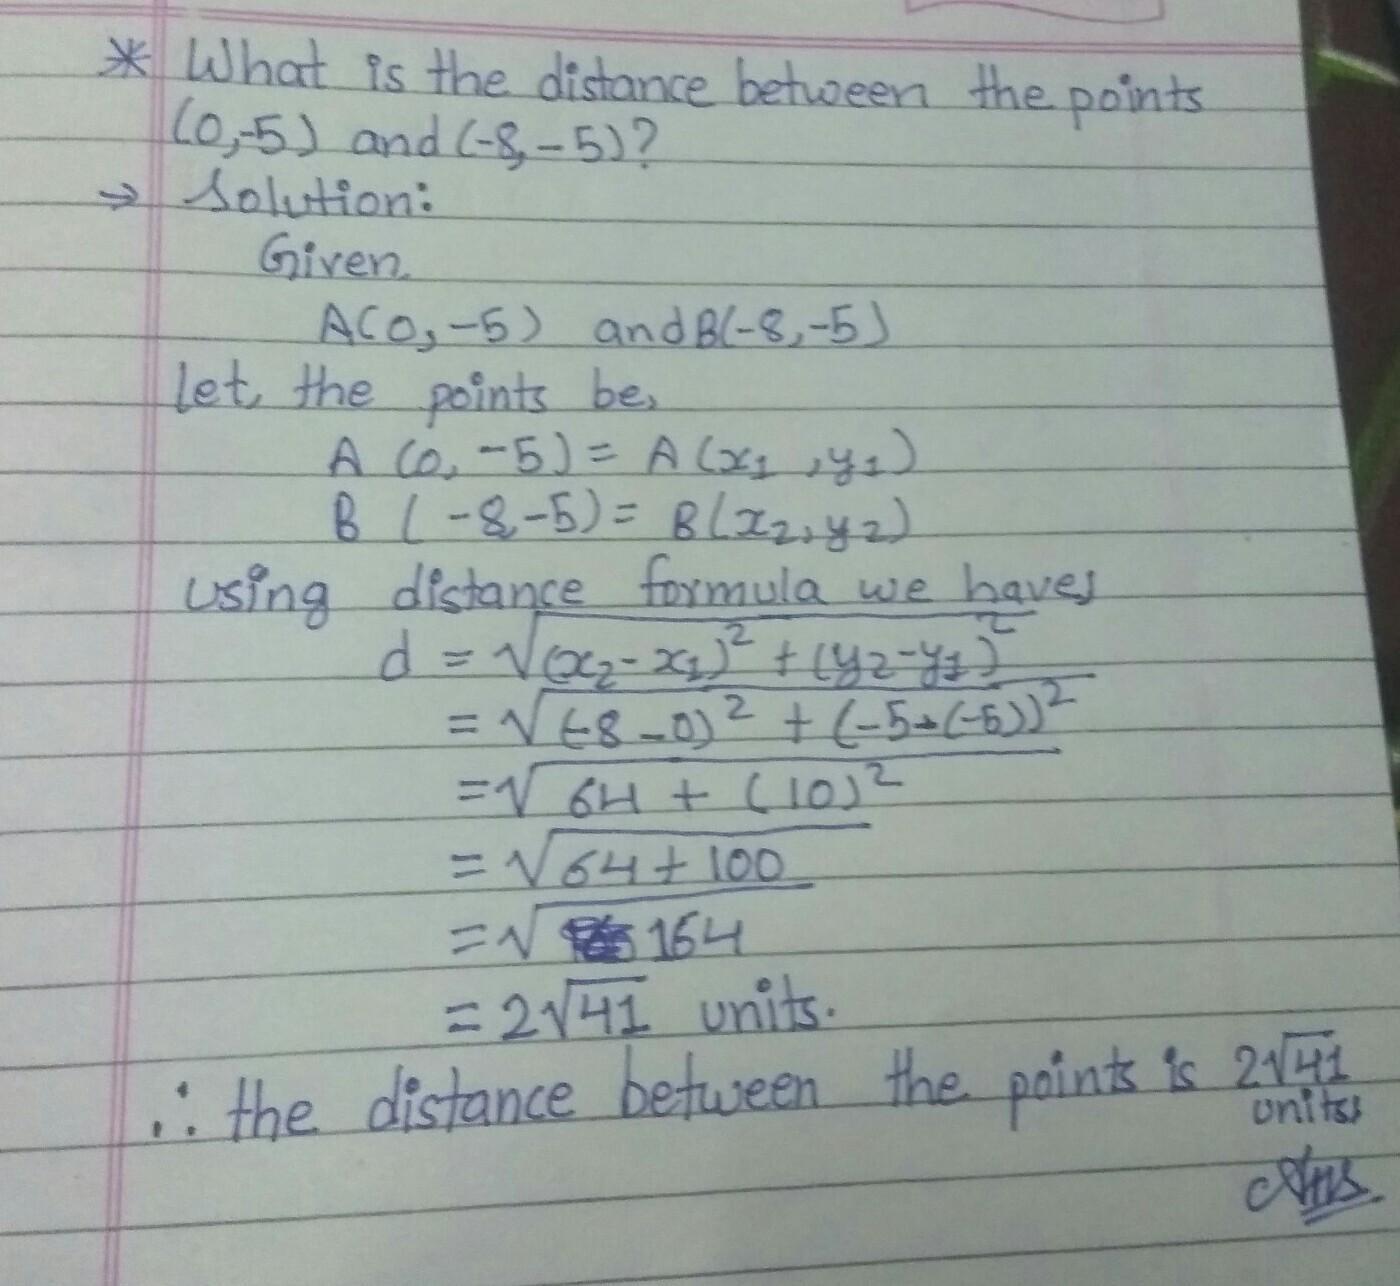 * What is the distance between the points
(0,-5) and (-8,-5)?
→ Solution:
Given
A(0,-5) and B(-8,-5)
Let, the points be,
A (0, -5) = A (x₁ , y₁)
B (-8,-5) = B(x₂, y₂)
using distance formula we have,
d = √(x₂-x₁)² + (y₂-y₁)²
= √(-8-0)² + (-5-(-5))²
= √64 + (10)²
= √64+100
= √164
= 2√41 units.
∴ the distance between the points is 2√41
units,
Ans.